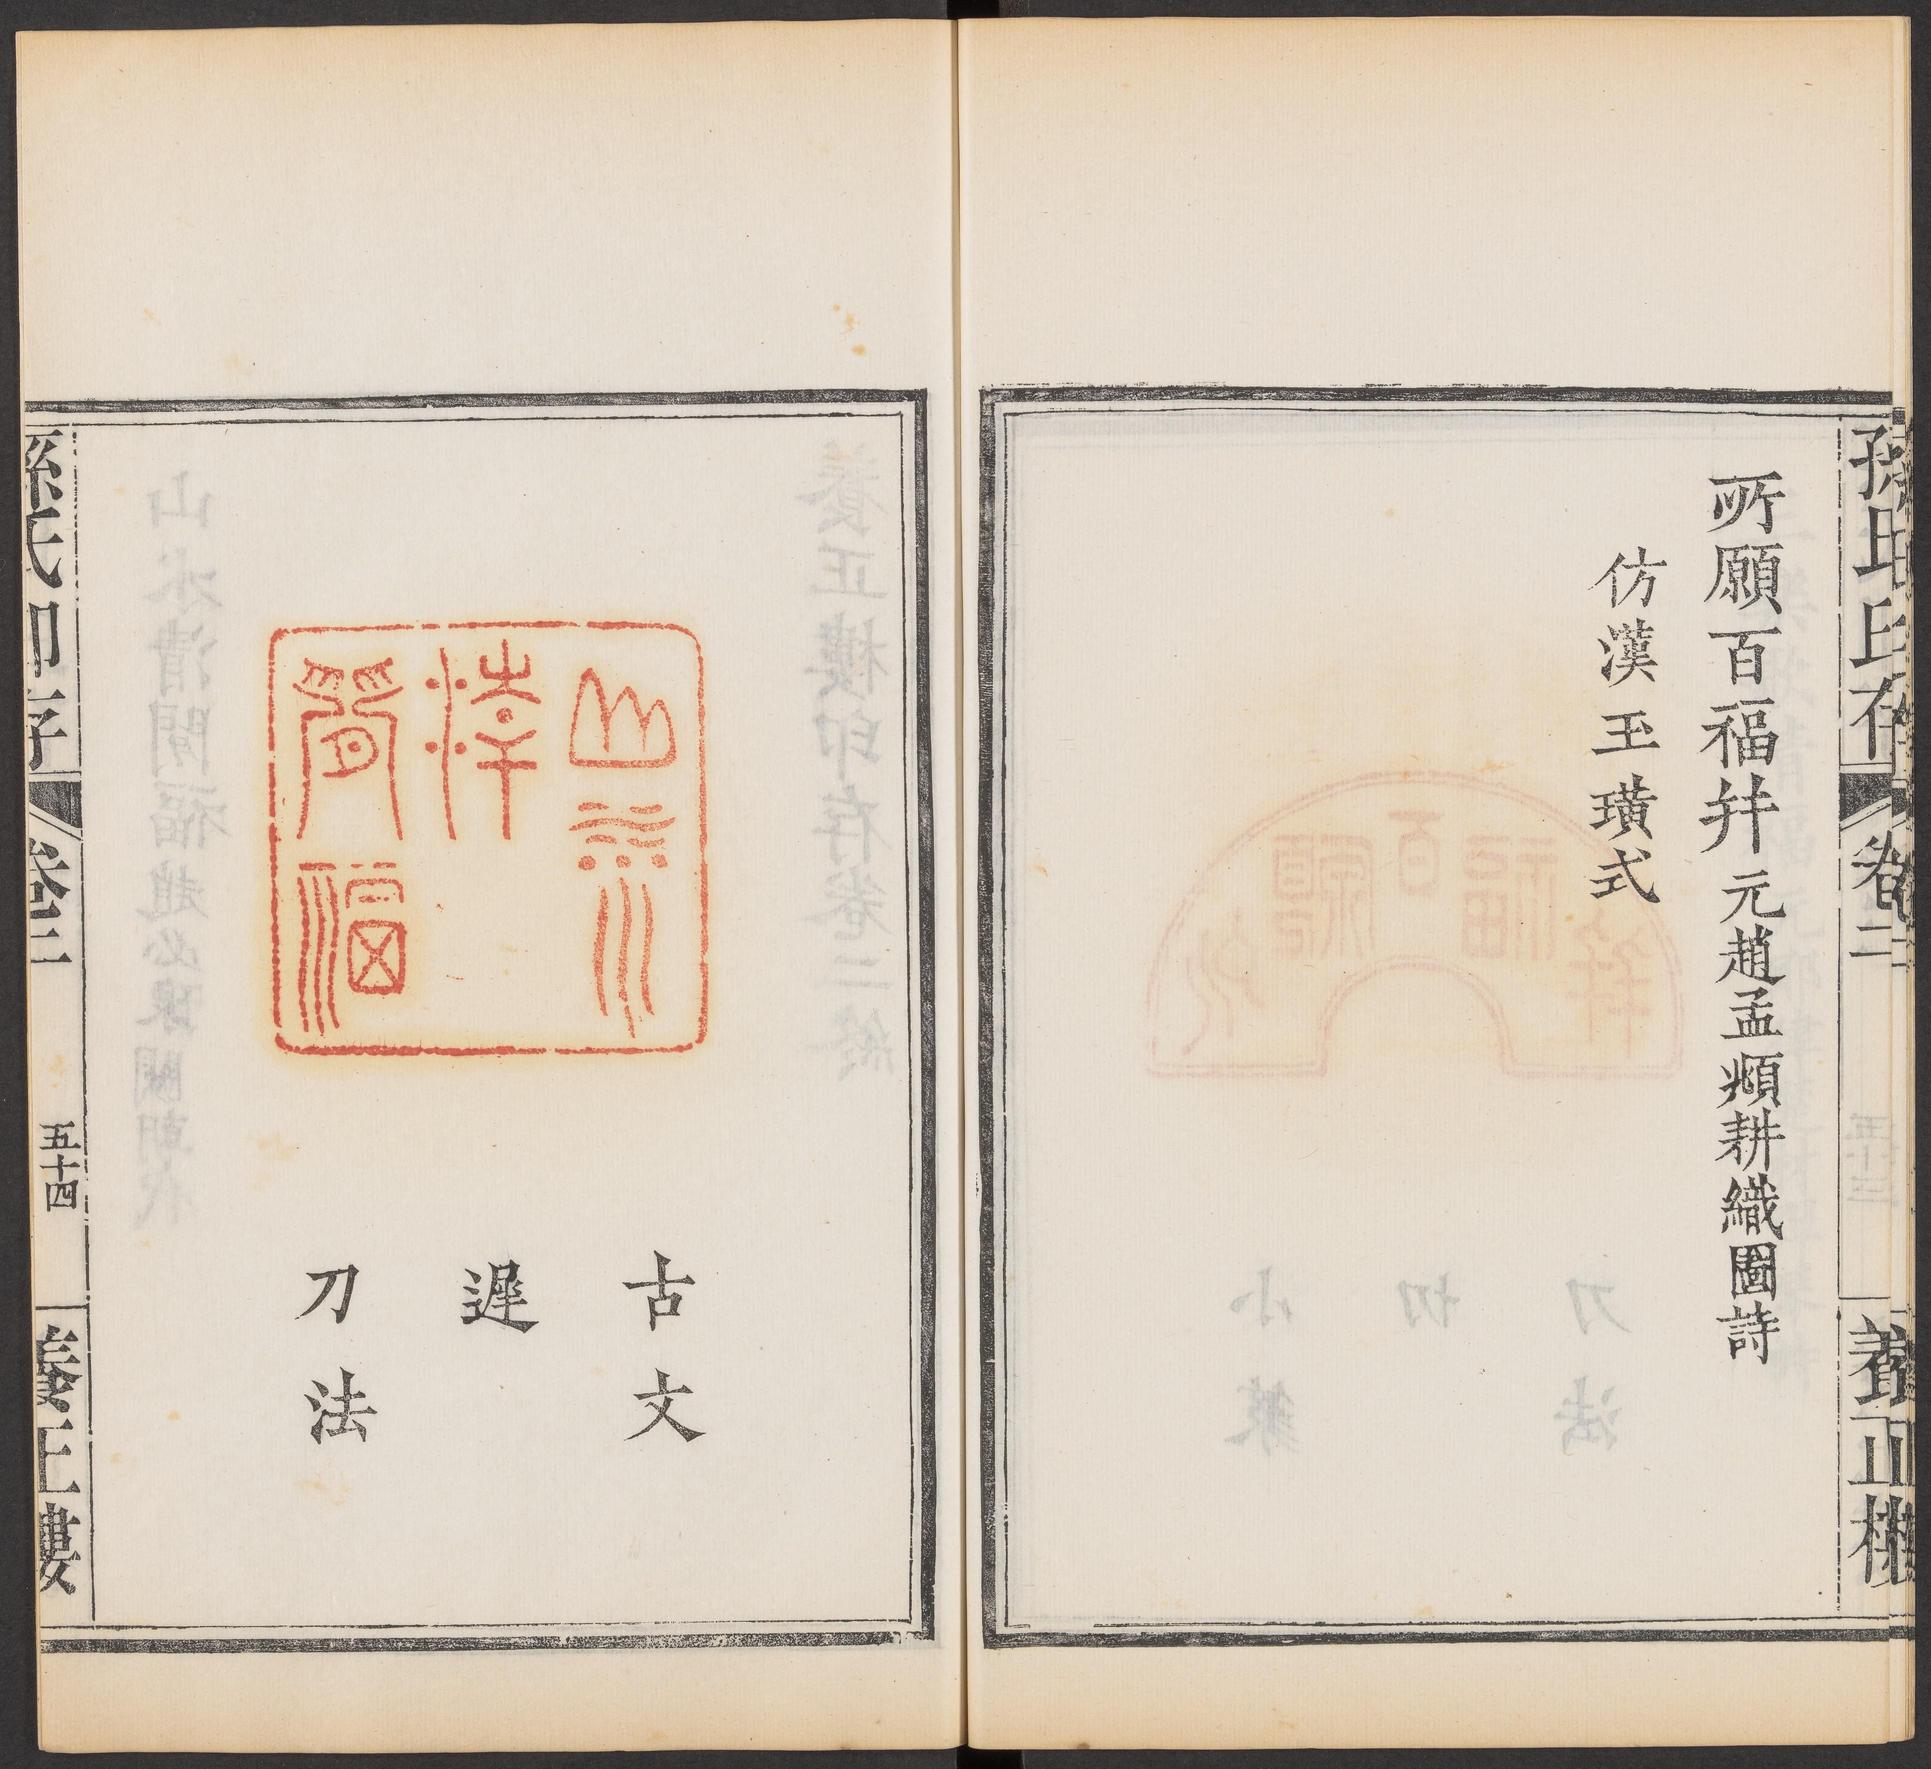 孫氏印存
卷三
養正樓
所願百福并元趙孟頫耕織圖詩
仿漢玉璜式
古文
遲
刀法
孫氏印存
卷三
五十四
養正樓